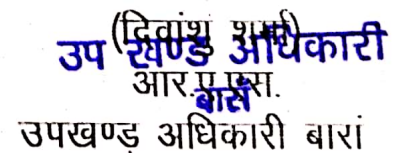 (दिवांशु शर्मा)
उप खण्ड अधिकारी
आर.ए.एस.
बारां
उपखण्ड अधिकारी बारां